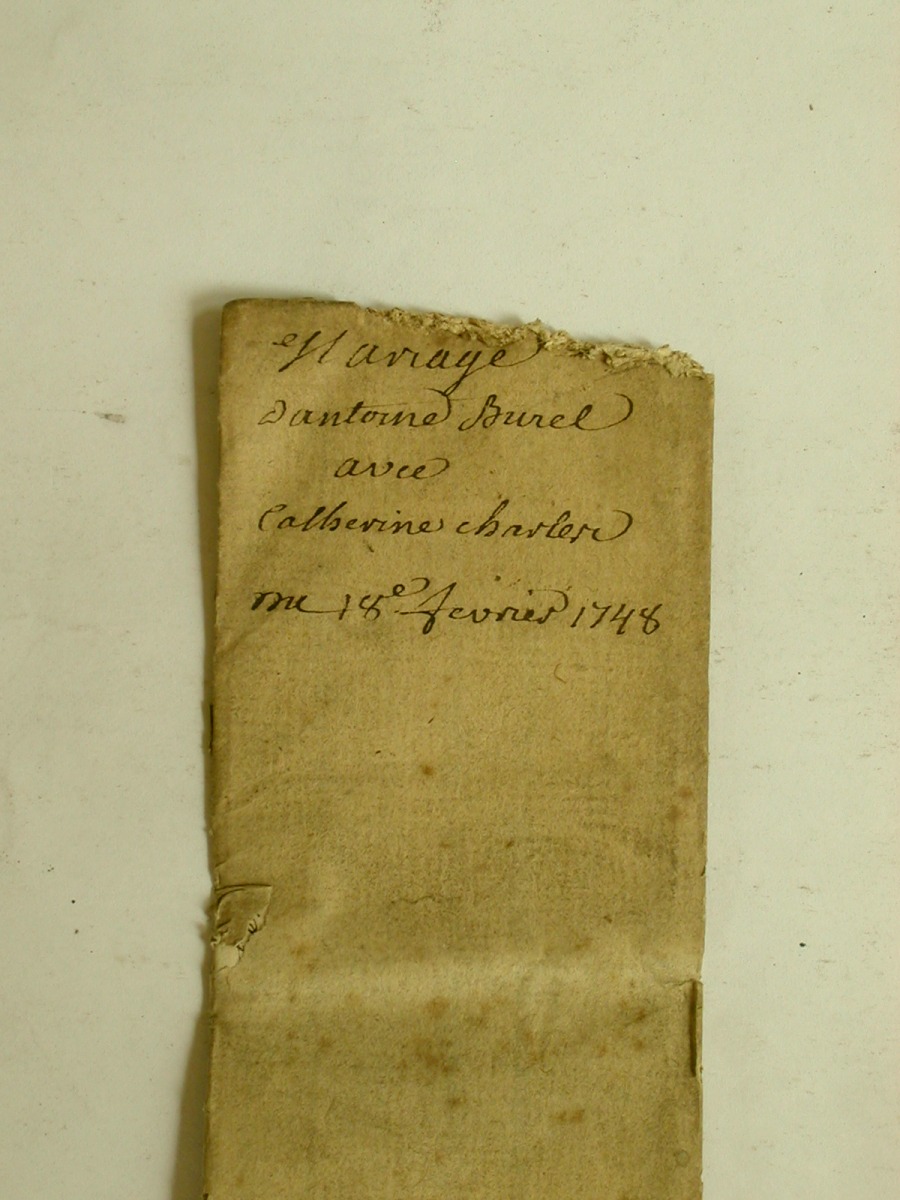 Mariage
dantoine Burel
avec
Catherine charlere
18e fevrier 1748